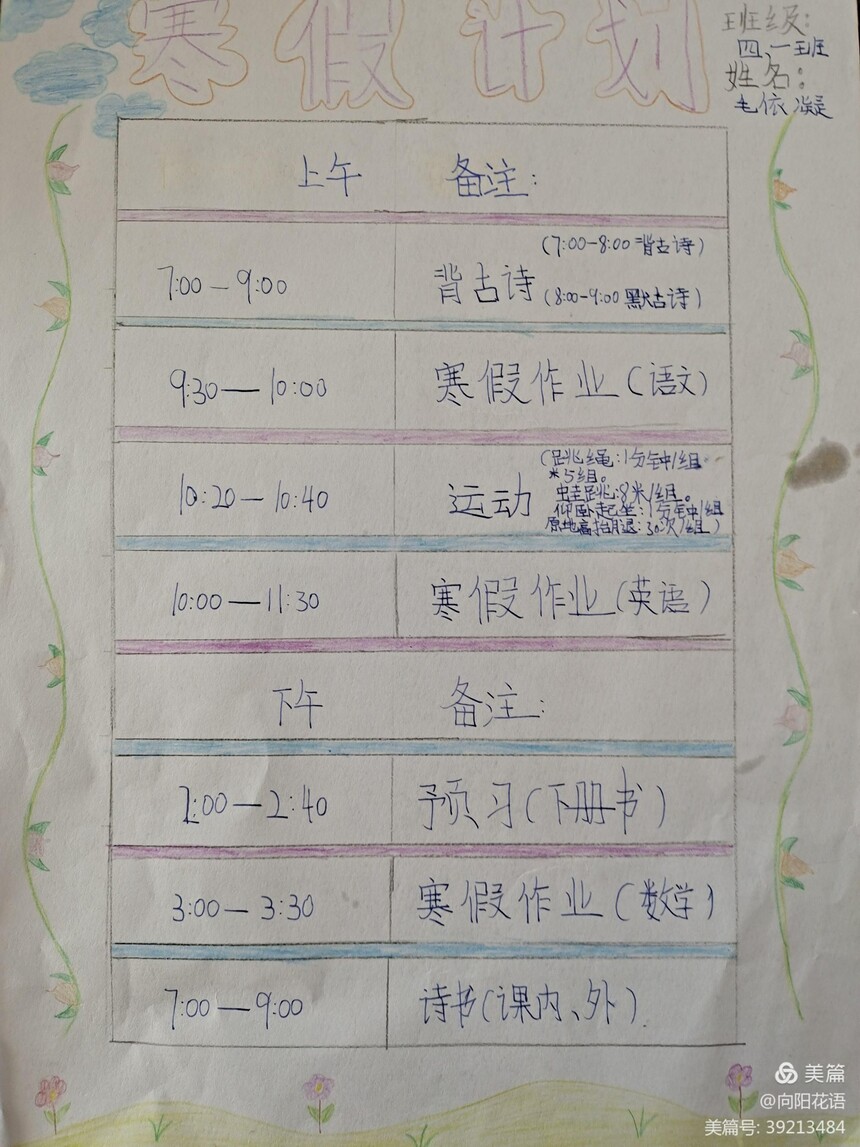 寒假计划
班级:
四、一班
姓名:
毛依凝
上午 备注:
7:00—9:00 背古诗 (7:00-8:00背古诗)
(8:00-9:00默古诗)
9:30—10:00 寒假作业(语文)
10:20—10:40 运动 (跳绳:1分钟/组
*5组。
蛙跳:8米/组。
仰卧起坐:1分钟/组
原地高抬腿:30次/组)
10:00—11:30 寒假作业(英语)
下午 备注:
2:00—2:40 预习(下册书)
3:00—3:30 寒假作业(数学)
7:00—9:00 读书(课内、外)
美篇
@向阳花语
美篇号: 39213484